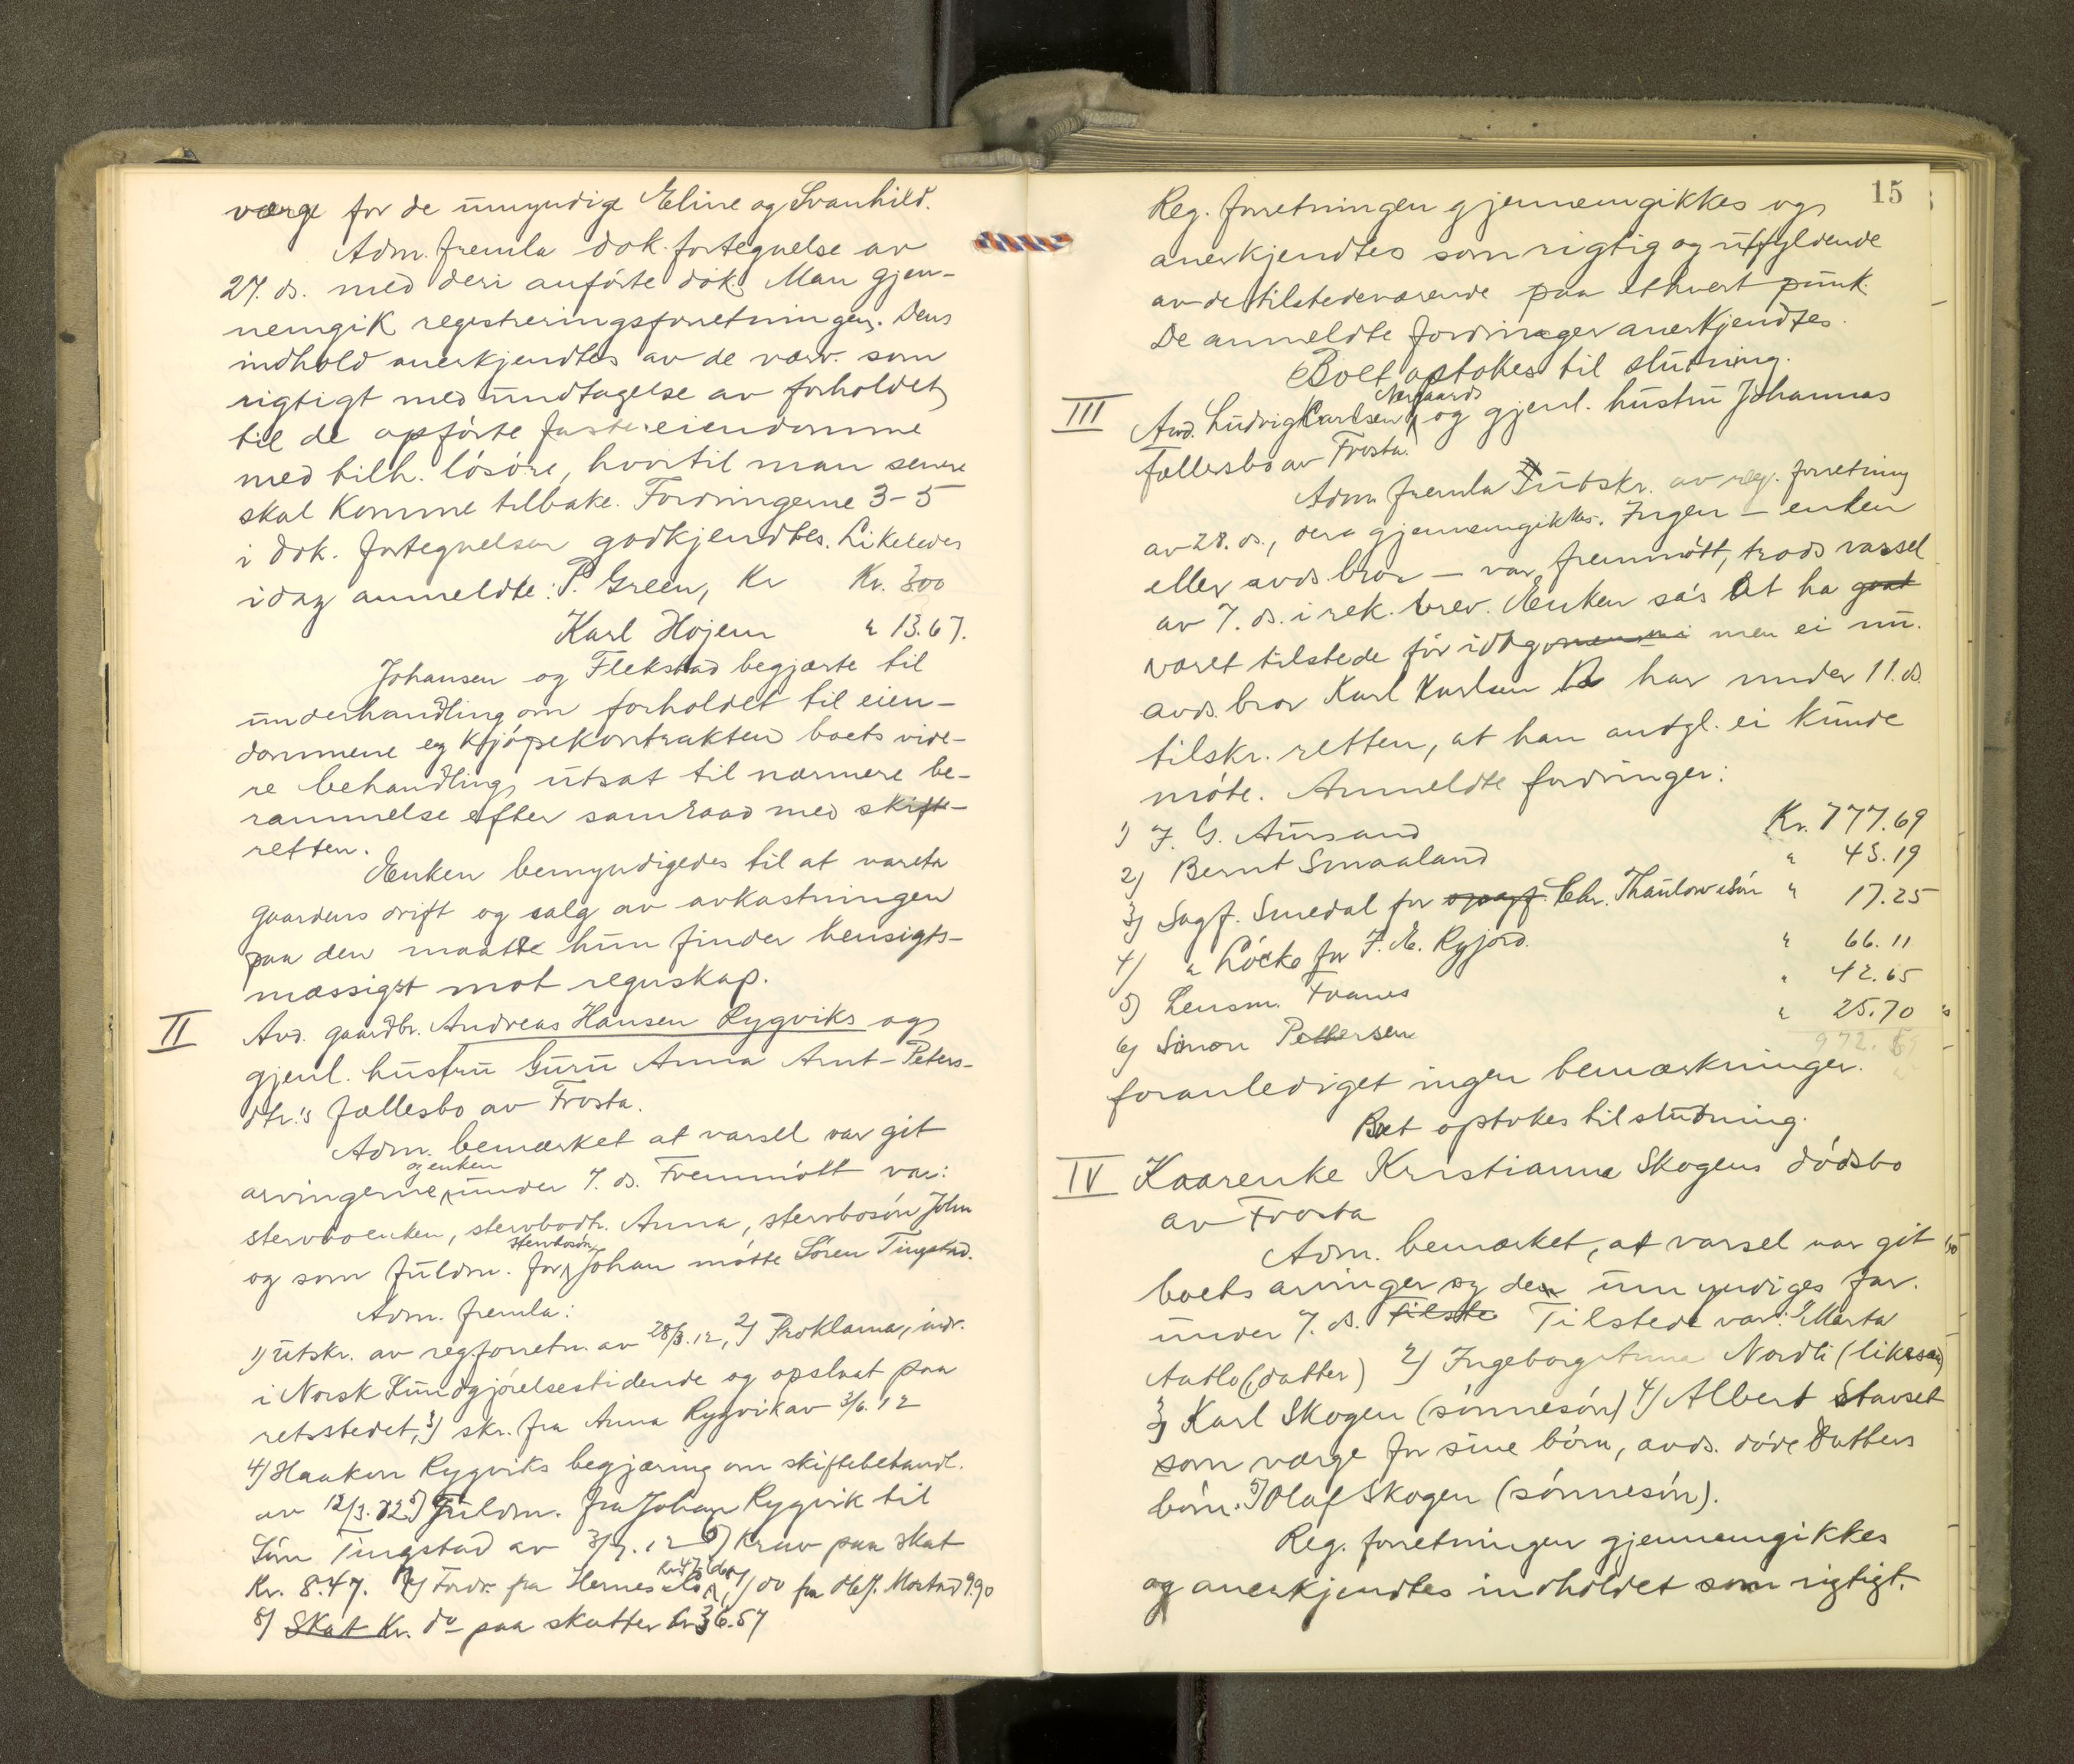 værge for de umyndige Eline og Svanhild.
Adm. fremla dok. fortegnelse av
27. ds. med deri anförte dok. Man gjen-
nemgik registreringsforretningen. Dens
indhold anerkjendtes av de værv. som
rigtigt med undtagelse av forholdet
til de opförte faste eiendomme
med tilh. lösöre, hvortil man senere
skal komme tilbake. Fordringerne 3-5
i dok. fortegnelsen godkjendtes. Likeledes
idag anmeldte: P. Green, Kr Kr. 300
Karl Hojem " 13.67.
Johansen og Flekstad begjærte til
underhandling om forholdet til eien-
dommene og kjöpekontrakten boets vide-
re behandling utsat til nærmere be-
rammelse efter samraad med skifte-
retten.
Enken bemyndigedes til at vareta
gaardens drift og salg av avkastningen
paa den maate hun finder hensigts-
mæssigst mot regnskap.
II Avd. gaardbr. Andreas Hansen Rygviks og
gjenl. hustru Guru Anna Arnt-Peters-
dtr.'s fællesbo av Frosta.
Adm. bemærket at varsel var git
arvingerne og enken under 7. ds. Fremmött var:
stervboenken, stervbodtr. Anna, stervbosön John
og som fuldm. for stervbosön Johan mötte Sören Tingstad.
Adm. fremla:
1) utskr. av reg.forretn. av 28/3.12, 2) Proklama, indr.
i Norsk Kundgjörelsestidende og opslaat paa
retsstedet, 3) skr. fra Anna Rygvik av 3/6.12
4) Haakon Rygviks begjæring om skiftebehandl.
av 12/3.12 5) Fuldm. fra Johan Rygvik til
Sörn Tingstad av 3/7.12 6) Krav paa skat
Kr. 8.47. 7) Fordr. fra Hernes do fra Olaf. Mostad 9.90
8) Skat Kr. do paa skatter kr 36.57
15
Reg. forretningen gjennemgikkes og
anerkjendtes som rigtig og utfyldende
av de tilstedeværende paa ethvert punk.
De anmeldte fordringer anerkjendtes.
Boet optokes til slutning.
III Avd. Ludvig Karlsen Norgaards og gjenl. hustru Johannas
fællesbo av Frosta.
Adm. fremla utskr. av reg. forretning
av 28. ds., dera gjennemgikkes. Ingen – enken
eller avds. bror – var fremmött, trods varsel
av 7. ds. i rek. brev. Enken sa's at ha goat
været tilstede för idag men ei nu.
avds. bror Karl Karlsen har under 11. ds.
tilskr. retten, at han andgl. ei kunde
möte. Anmeldte fordringer:
1) F. G. Aursand Kr. 777.69
2) Bernt Smaaland " 43.19
3) Sagf. Smedal for Chr. Thaulow & Sön " 17.25
4) " Löcke for F. M. Ryjord. " 66.11
5) Lensm. Tranes " 42.65
6) Simon Pettersen " 25.70
foranlediget ingen bemærkninger.
Boet optokes til slutning.
IV Kaarenke Kristianna Skogens dödsbo
av Frosta
Adm. bemærket, at varsel var git
boets arvinger og den umyndiges far.
under 7. ds. Tilste Tilstede var: 1) Marta
Aatlo (datter) 2) Ingeborg Anna Nordli (likesaa)
3) Karl Skogen (sönnesön) 4) Albert Stavset
som værge for sine börn, avds. döde datters
börn. 5) Olaf Skogen (sönnesön).
Reg. forretningen gjennemgikkes
og anerkjendtes indholdet som rigtigt.